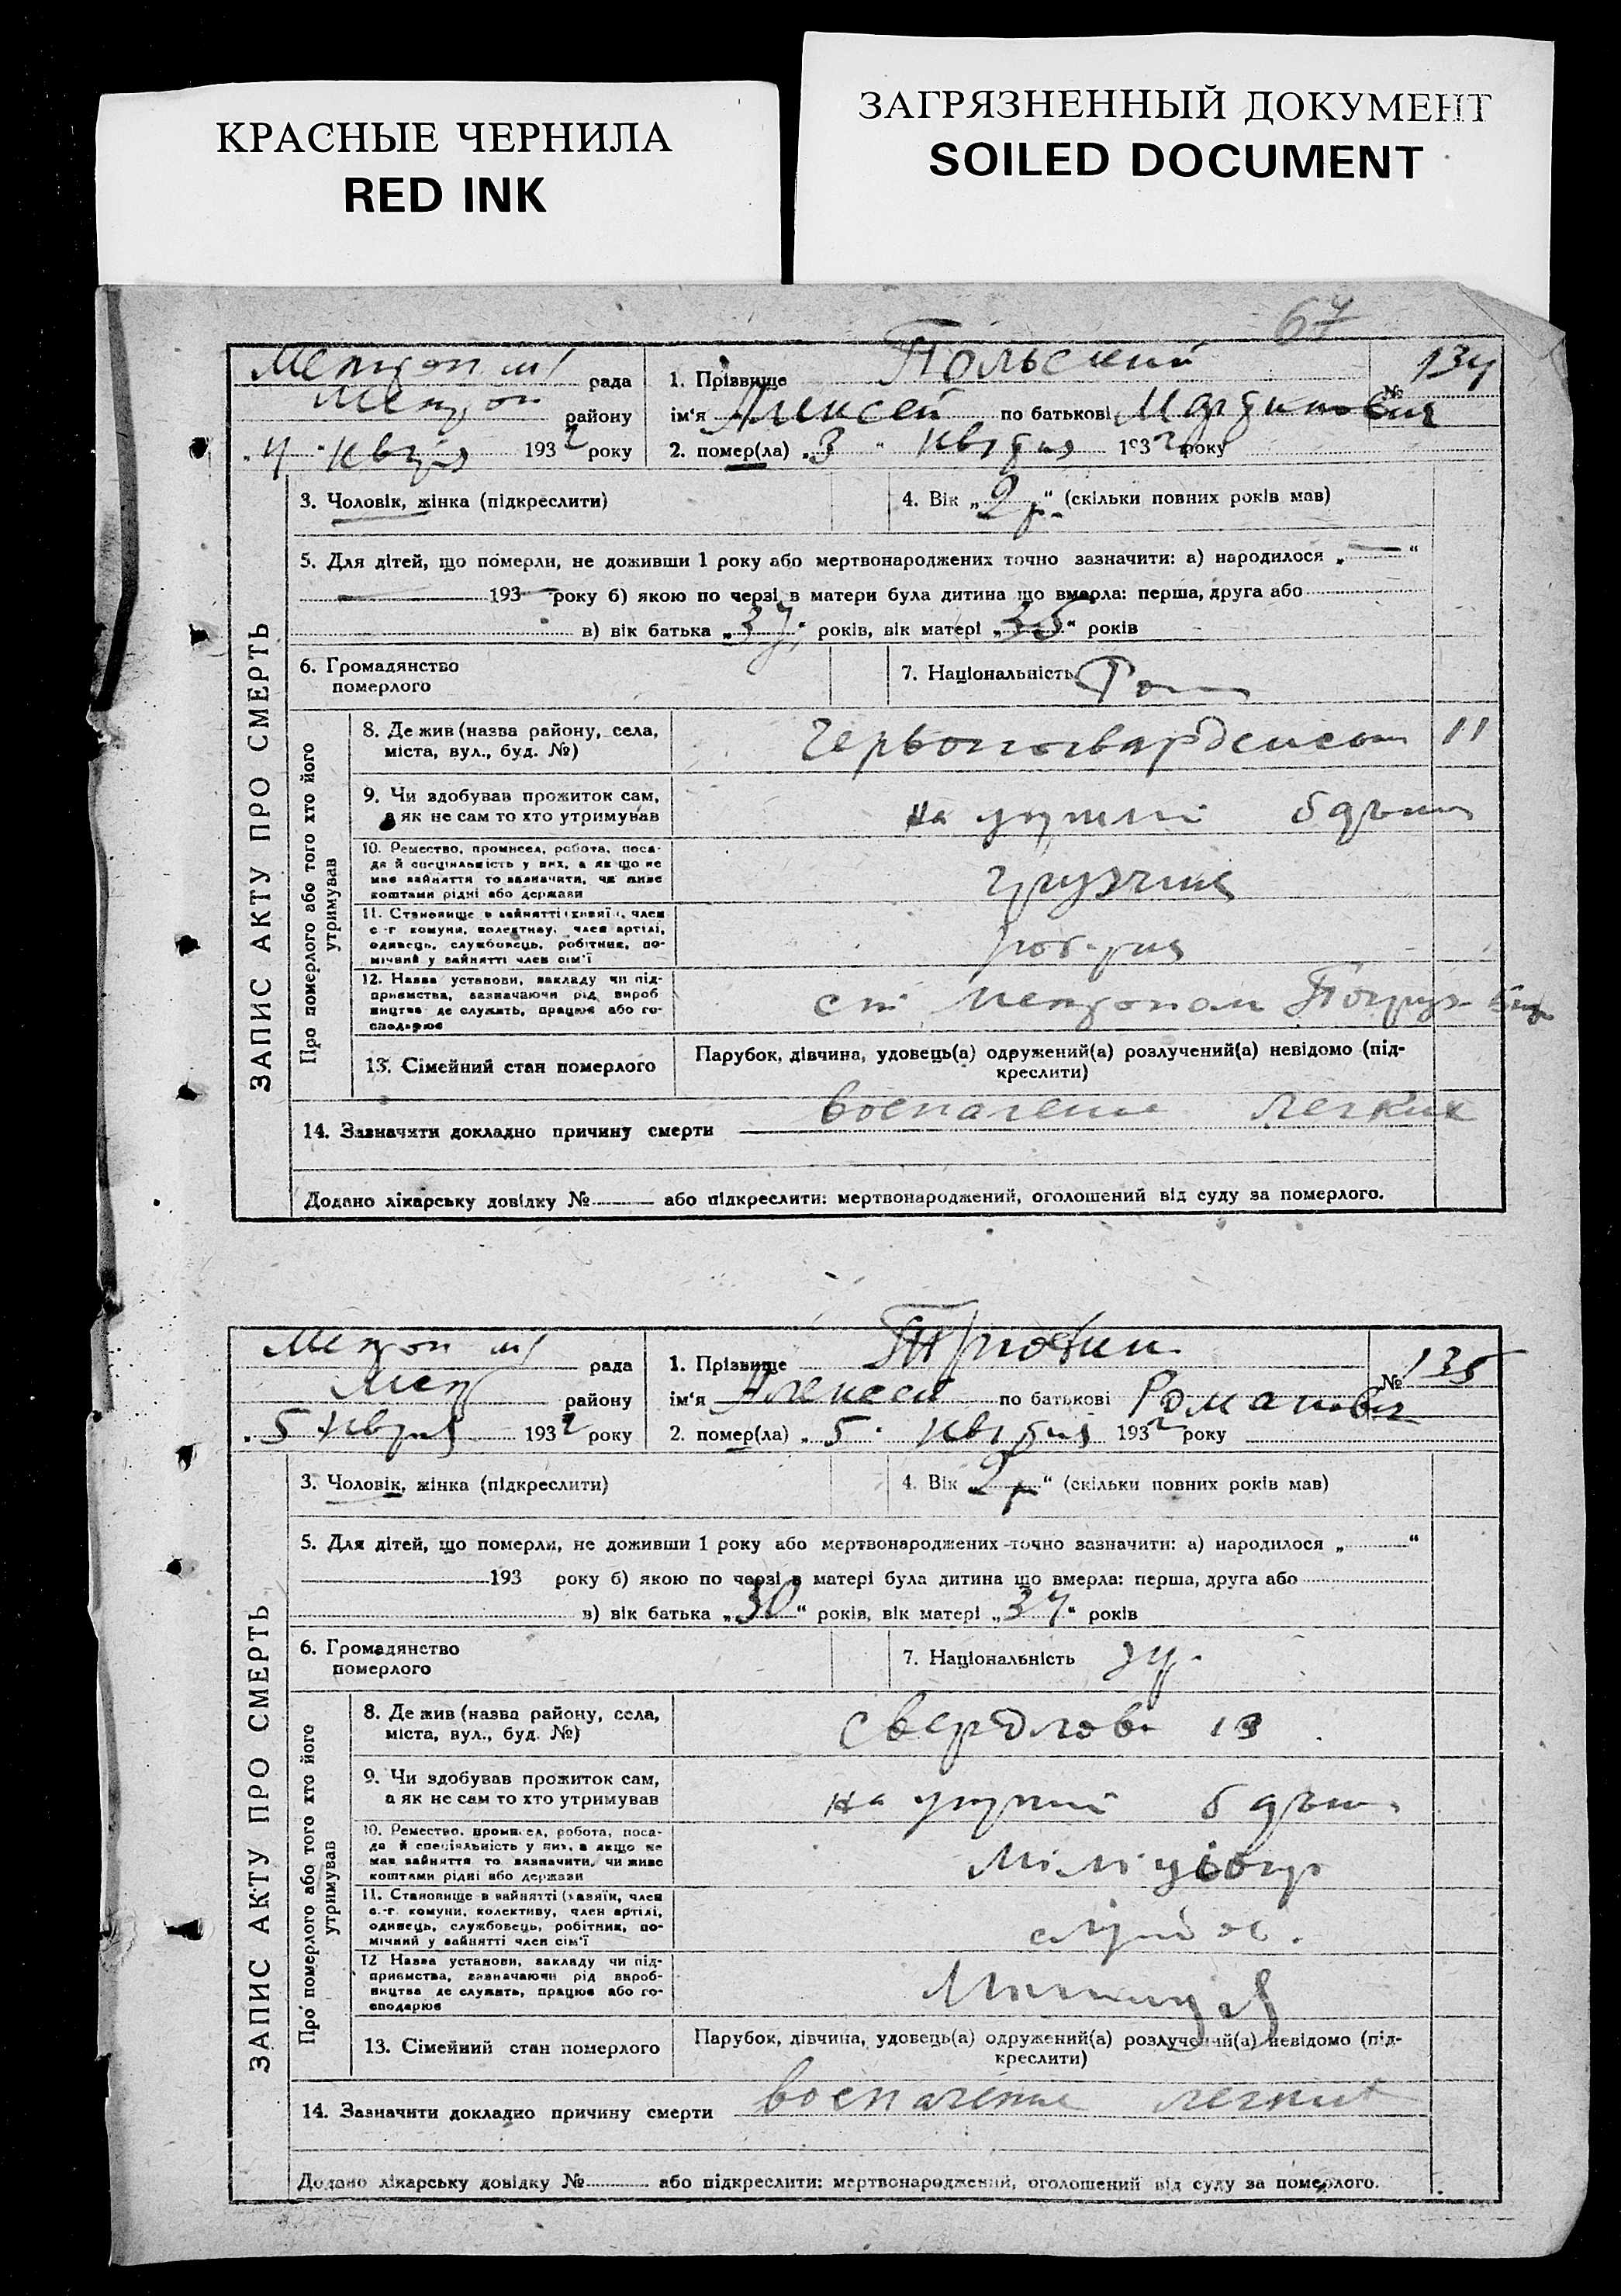 КРАСНЫЕ ЧЕРНИЛА
RED INK
ЗАГРЯЗНЕННЫЙ ДОКУМЕНТ
SOILED DOCUMENT
рада
району
193 2 року
1. Прізвище Польский
№ 134
ім‘я Алексей по батькові
2. помер(ла) „3“ 193 2 року
ЗАПИС АКТУ ПРО СМЕРТЬ
3. Чоловік, жінка (підкреслити)
4. Вік „2 р.“ (скільки повних років мав)
5. Для дітей, що померли, не доживши 1 року або мертвонароджених точно зазначити: а) народилося „—“
193 року б) якою по черзі в матери була дитина що вмерла: перша, друга або
в) вік батька „37“ років, вік матері „35“ років
6. Громадянство
померлого
7. Національність
Про померлого або того хто його
утримував
8. Де жив (назва району, села,
міста, вул., буд. №)
11
9. Чи здобував прожиток сам,
а як не сам то хто утримував
на
10. Ремество, промисел, робота, поса-
да й спеціяльність у них, а якщо не
мав зайняття то зазначити, чи живе
коштами рідні або держави
грузчик
11. Становище в зайнятті (хазяїн, член
с.-г. комуни, колективу, член артілі,
одинець, службовець, робітник, по-
мічний у зайнятті член сім‘ї
12. Назва установи, закладу чи під-
приємства, зазначаючи рід вироб
ництва де служить, працює або го-
сподарює
ст.
13. Сімейний стан померлого
Парубок, дівчина, удовець(а) одружений(а) розлучений(а) невідомо (під-
креслити)
14. Зазначити докладно причину смерти воспаление легких
Додано лікарську довідку № або підкреслити: мертвонароджений, оголошений від суду за померлого.
рада
району
„5 193 2 року
1. Прізвище
№ 135
ім‘я Алексей по батькові Романович
2. помер(ла) „5“ 193 2 року
ЗАПИС АКТУ ПРО СМЕРТЬ
3. Чоловік, жінка (підкреслити)
4. Вік 2 р“ (скільки повних років мав)
5. Для дітей, що померли, не доживши 1 року або мертвонароджених точно зазначити: а) народилося „ “
193 року б) якою по черзі в матері була дитина що вмерла: перша, друга або
в) вік батька „30“ років, вік матері „ “ років
6. Громадянство
померлого
7. Національність
Про померлого або того хто його
утримував
8. Де жив (назва району, села,
міста, вул., буд. №)
Свердлова
9. Чи здобував прожиток сам,
а як не сам то хто утримував
на
10. Ремество, промисел, робота, поса-
да й спеціяльність у них, а якщо не
мав зайняття то зазначити, чи живе
коштами рідні або держави
11. Становище в зайнятті (хазяїн, член
с.-г. комуни, колективу, член артілі,
одинець, службовець, робітник, по-
мічний у зайнятті член сім‘ї
12 Назва установи, закладу чи під-
приємства, зазначаючи рід вироб-
ництва де служить, працює або го-
сподарює
13. Сімейний стан померлого
Парубок, дівчина, удовець(а) одружений(а) розлучений(а) невідомо (під-
креслити)
14. Зазначити докладно причину смерти воспаление легких
Додано лікарську довідку № або підкреслити: мертвонароджений, оголошений від суду за померлого.